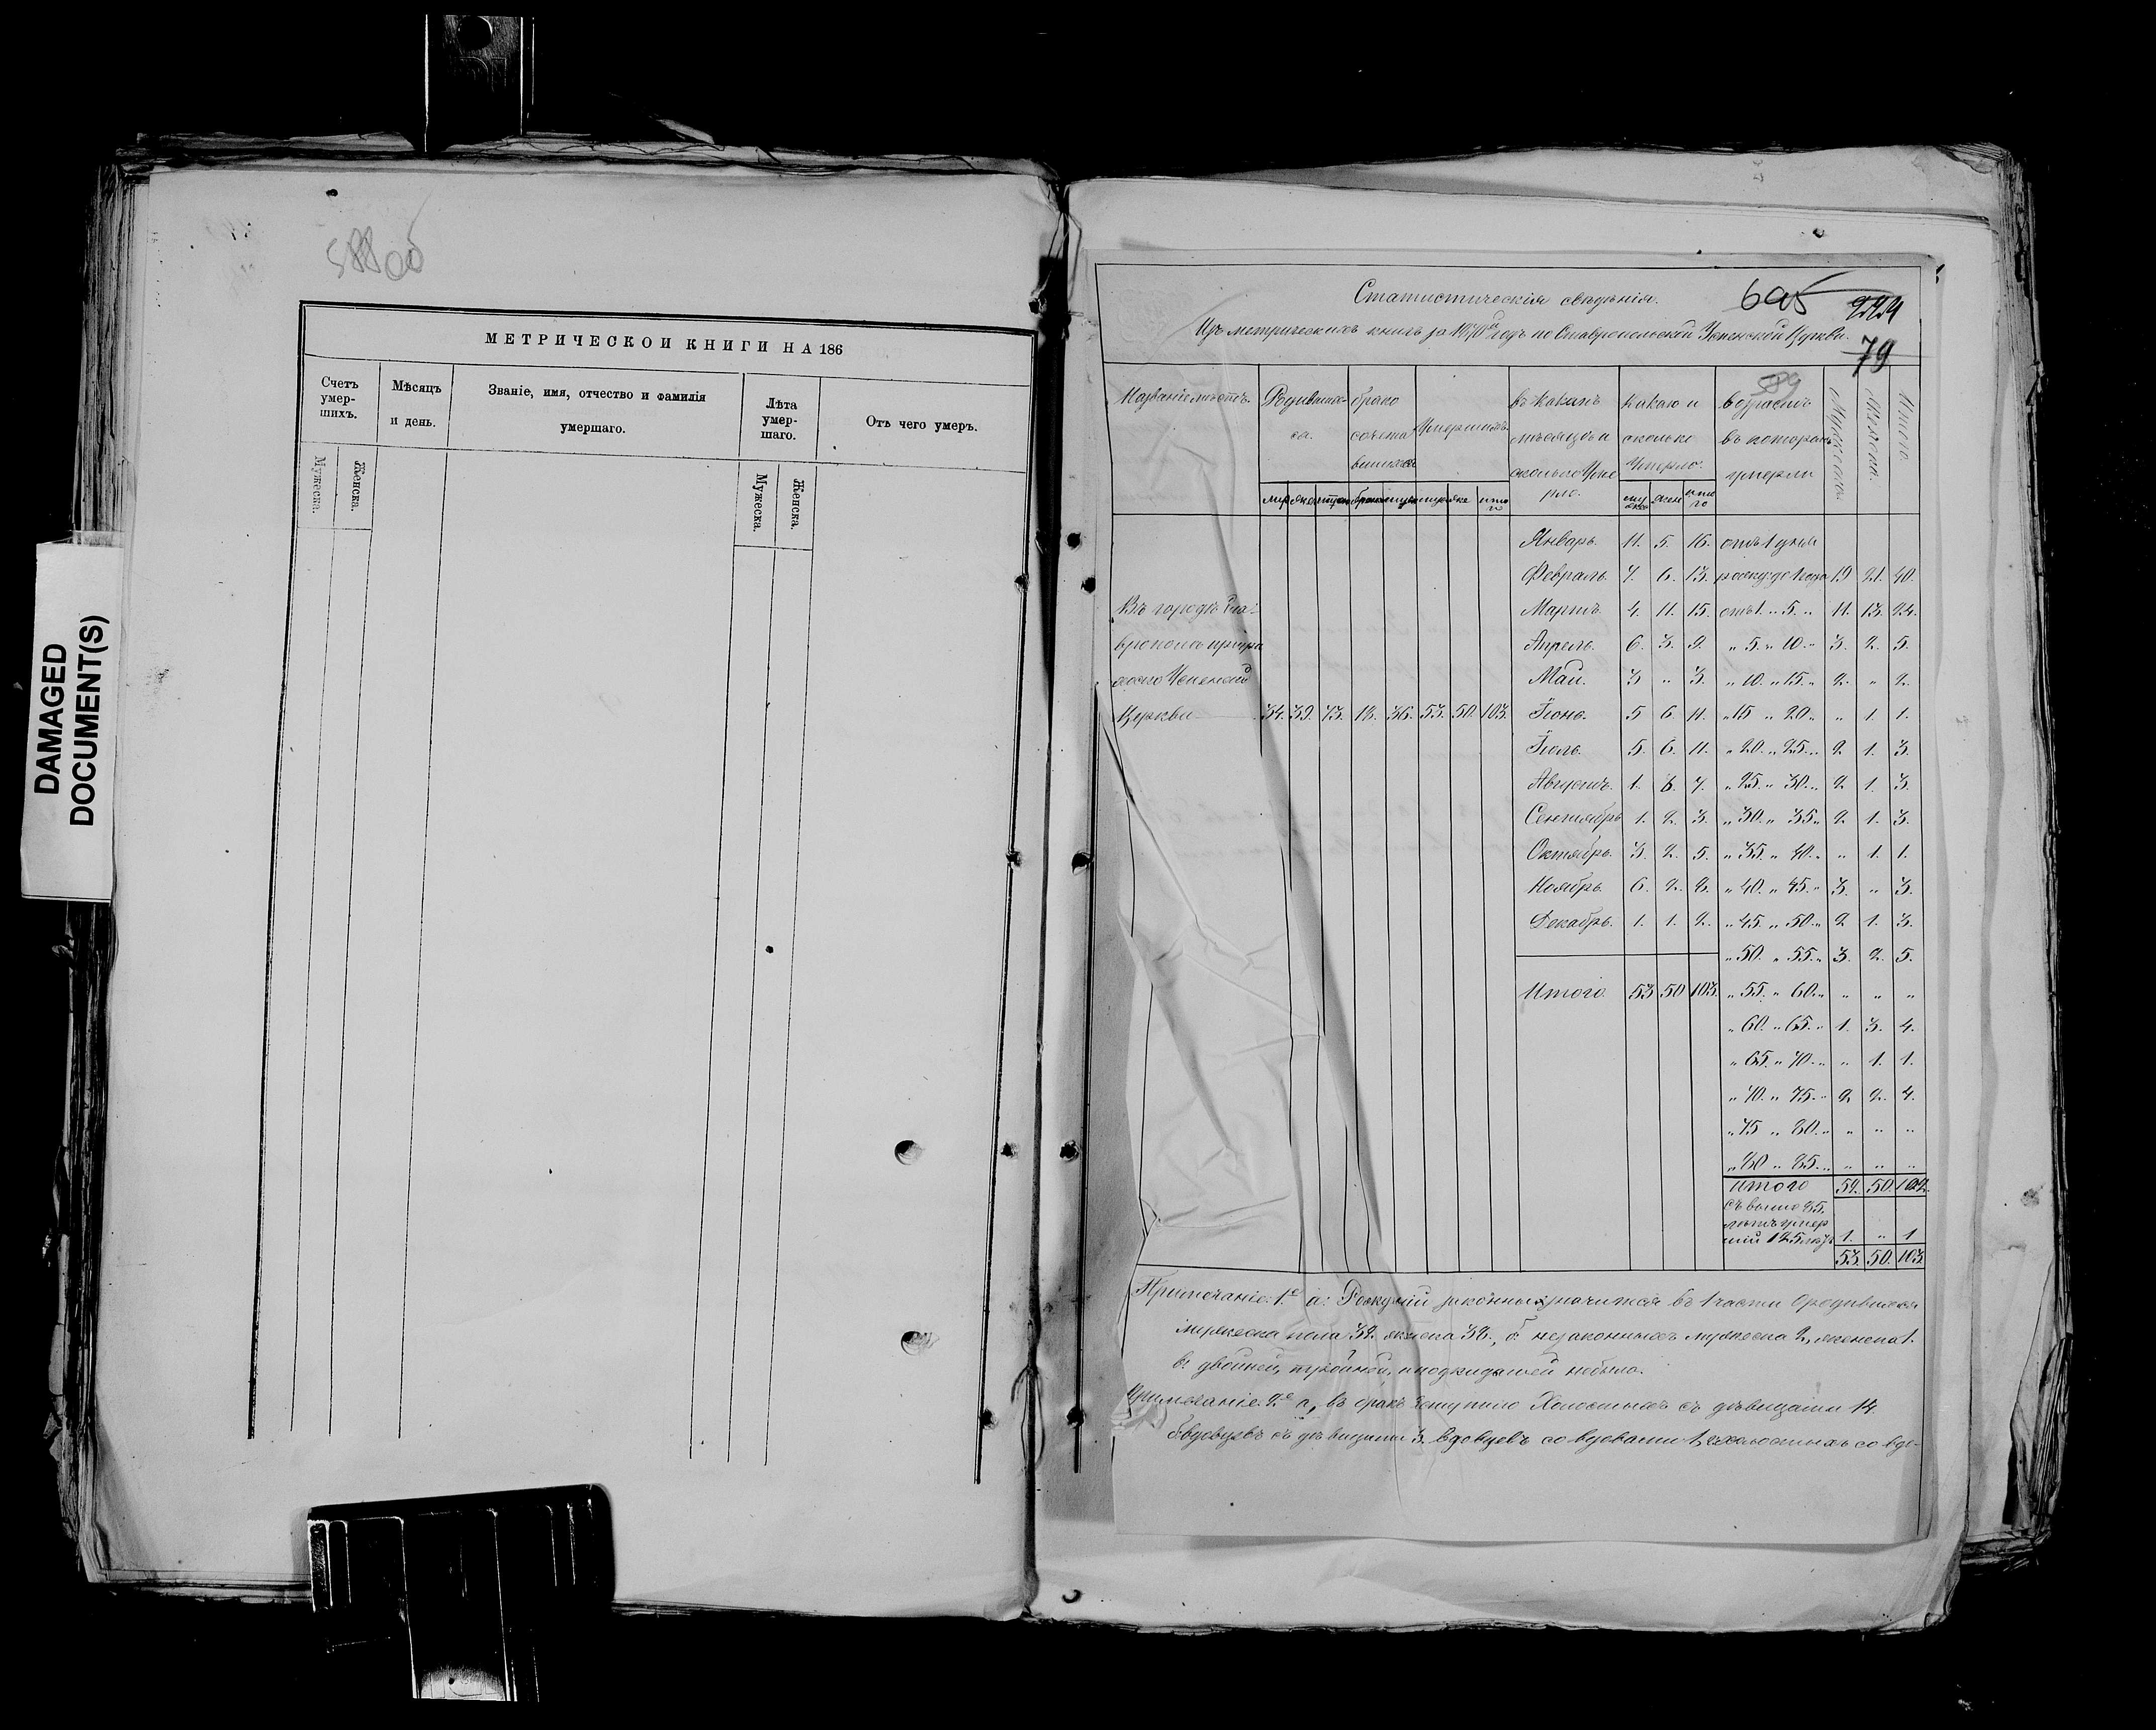 DAMAGED
DOCUMENT(S)
МЕТРИЧЕСКОЙ КНИГИ НА 186
Счетъ умер-шихъ.
Мѣсяцъ и день.
Званіе, имя, отчество и фамилія умершаго.
Лѣта умер-шаго.
Отъ чего умеръ.
Мужеска. Женска. Мужеска. Женска.
Статистическія свѣдѣнія.
695
79
589
Изъ метрическихъ книгъ за 1870й годъ по Ставропольской Успенской Церкви.
Названіе мѣстъ.
Родивших-ся.
брако сочета вшихся
Умершихъ
въ какихъ мѣсяцахъ и сколько Уме рло.
какого и сколько Умерло.
возрастъ въ которомъ умерли
Мужеска.
Женска.
Итого
Январь. 11. 5. 16. отъ 1 дня
Февраль. 7. 6. 13. рожд: до 1 года 19 21. 40.
Въ городѣ Ста- Мартъ. 4. 11. 15. отъ 1. " 5. " 11. 13. 24.
врополѣ прихра Апрель. 6. 3. 9. " 5. " 10. " 3. 2. 5.
Успенской Май. 3 " 3. " 10. " 15. " 2. " 2.
Церкви 34. 39. 73. 18. 36. 53. 50. 103. Іюнь. 5 6. 11. " 15 " 20 " " 1. 1.
Іюль. 5. 6. 11. " 20. " 25. " 2 1. 3.
Августъ. 1. 6. 7. " 25. " 30. " 2 1. 3.
Сентябрь 1. 2. 3. " 30. " 35 " 2 1. 3.
Октябрь. 3. 2. 5. " 35. " 40. " " 1. 1.
Ноябрь. 6. 2. 8. " 40. " 45. " 3. " 3.
Декабрь. 1. 1. 2. " 45. " 50. " 2 1. 3.
" 50. " 55. " 3. 2. 5.
Итого 53 50 103. " 55. " 60. " " " "
" 60. " 65. " 1. 3. 4.
" 65. " 70. " " 1. 1.
" 70. " 75. " 2 2. 4.
" 75 " 80. " " " "
" 80 " 85. " " " "
Итого 52. 50. 102.
съ выше 85.
лѣтъ умер
шій 125 1. " 1
53. 50. 103.
Примечаніе: 1е а: Рожденій законныхъ значится въ 1 части о родившихся
мужеска пола 32. женска 38., б. незаконныхъ мужеска 2, женска 1.
в: двойней, тройней, и подкидышей небыло.
Примечаніе: 2е а, въ бракъ вступило Холостыхъ съ дѣвицами 14.
б. вдовцевъ съ дѣвицами 3. вдовцевъ со вдовами 1, холостыхъ со вдо-